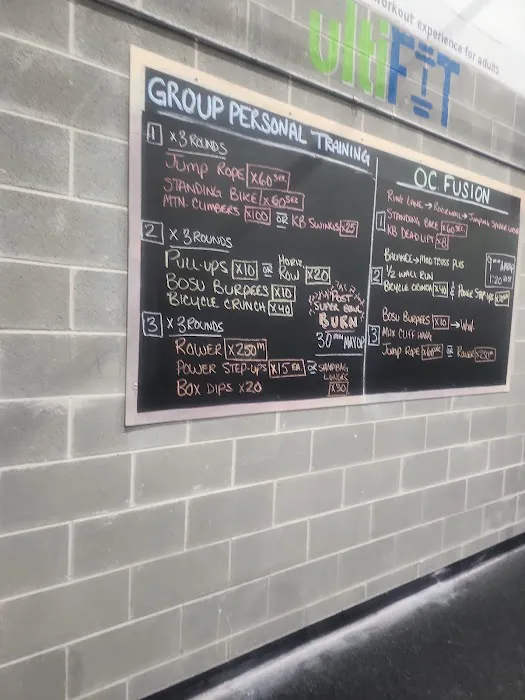 workout experience for adults
ultiFIT
GROUP PERSONAL TRAINING
1 x 3 ROUNDS
JUMP ROPE x60 SEC
STANDING BIKE x 60 SEC
MTN. CLIMBERS x100 OR KB SWINGS x25
2 x 3 ROUNDS
PULL-UPS x10 OR HORIZ. ROW x20
BOSU BURPEES x10
BICYCLE CRUNCH x40
POST
SUPER BOWL
BURN
30 MIN MAYOR
3 x 3 ROUNDS
ROWER x250m
POWER STEP-UPS x15 EA. OR SANDBAG LUNGES x30
BOX DIPS x20
OC FUSION
1
STANDING BIKE x60 SEC
KB DEADLIFT x8
2 1/2 WALL RUN
BICYCLE CRUNCH x40 & POWER STEP-UPS
BOSU BURPEES x10
3
JUMP ROPE OR ROWER